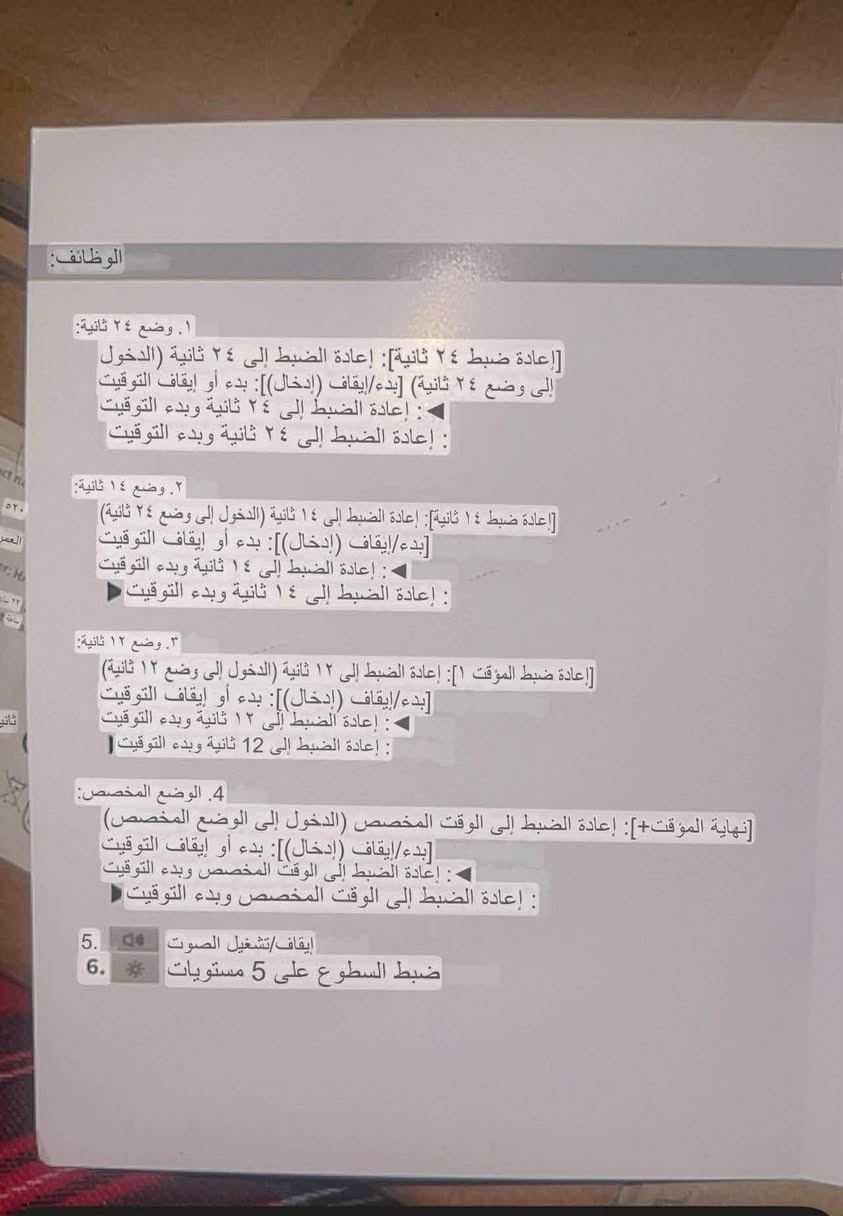 الوظائف:
١. وضع ٢٤ ثانية:
[إعادة ضبط ٢٤ ثانية]: إعادة الضبط إلى ٢٤ ثانية (الدخول
إلى وضع ٢٤ ثانية) [بدء/إيقاف (إدخال)]: بدء أو إيقاف التوقيت
◀: إعادة الضبط إلى ٢٤ ثانية وبدء التوقيت
: إعادة الضبط إلى ٢٤ ثانية وبدء التوقيت
٢. وضع ١٤ ثانية:
[إعادة ضبط ١٤ ثانية]: إعادة الضبط إلى ١٤ ثانية (الدخول إلى وضع ٢٤ ثانية)
[بدء/إيقاف (إدخال)]: بدء أو إيقاف التوقيت
◀: إعادة الضبط إلى ١٤ ثانية وبدء التوقيت
: إعادة الضبط إلى ١٤ ثانية وبدء التوقيت
٣. وضع ١٢ ثانية:
[إعادة ضبط المؤقت ١]: إعادة الضبط إلى ١٢ ثانية (الدخول إلى وضع ١٢ ثانية)
[بدء/إيقاف (إدخال)]: بدء أو إيقاف التوقيت
◀: إعادة الضبط إلى ١٢ ثانية وبدء التوقيت
: إعادة الضبط إلى 12 ثانية وبدء التوقيت
4. الوضع المخصص:
[نهاية المؤقت+]: إعادة الضبط إلى الوقت المخصص (الدخول إلى الوضع المخصص)
[بدء/إيقاف (إدخال)]: بدء أو إيقاف التوقيت
◀: إعادة الضبط إلى الوقت المخصص وبدء التوقيت
: إعادة الضبط إلى الوقت المخصص وبدء التوقيت
5. إيقاف/تشغيل الصوت
6. ضبط السطوع على 5 مستويات
٥٢٠
العمر
ساعة